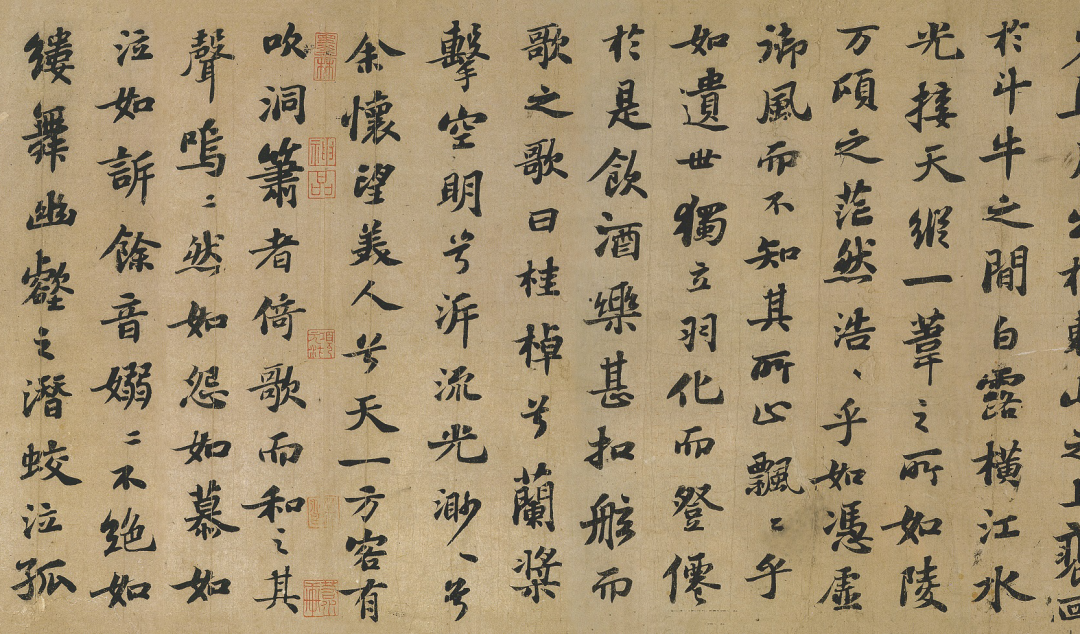 於東山之上
於斗牛之間白露橫江水
光接天縱一葦之所如陵
万頃之茫然浩〻乎如馮虛
御風而不知其所止飄〻乎
如遺世獨立羽化而登僊
於是飲酒樂甚扣舷而
歌之歌曰桂棹兮蘭槳
擊空明兮泝流光渺〻兮
余懷望美人兮天一方客有
吹洞簫者倚歌而和之其
聲嗚〻然如怨如慕如
泣如訴餘音嫋〻不絕如
縷舞幽壑之潛蛟泣孤